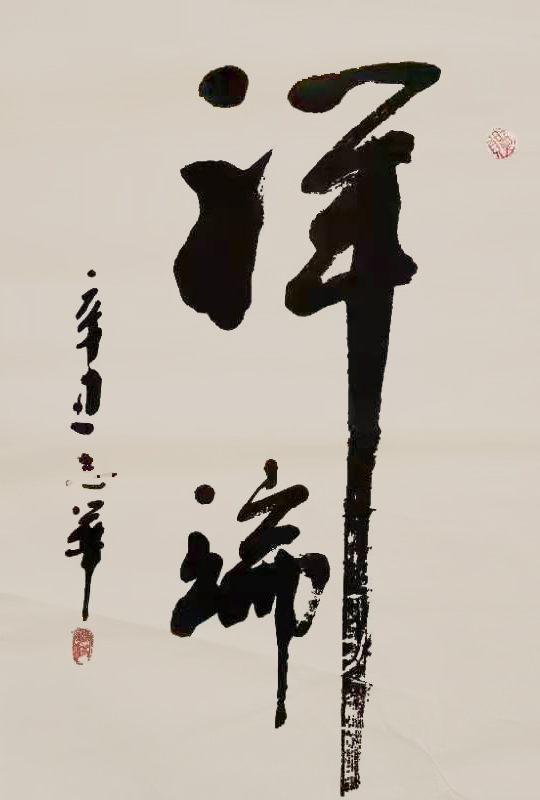 祥瑞
辛丑志華